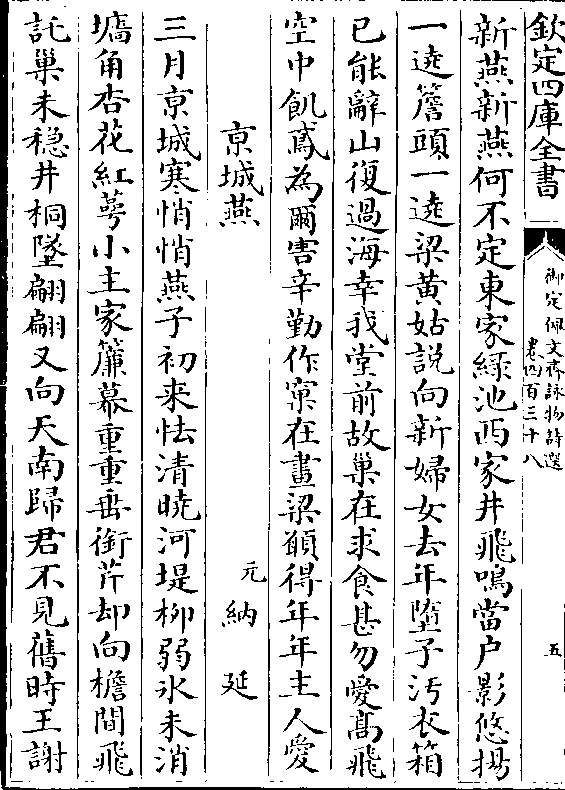 欽定四庫全書
御定佩文齋詠物詩選
卷四百三十八
五
新燕新燕何不定東家緑池西家井飛鳴當户影悠揚
一遶簷頭一遶梁黄姑説向新婦女去年墮子汚衣箱
已能辭山復過海幸我堂前故巢在求食甚勿愛髙飛
空中飢鳶為爾害辛勤作窠在畫梁願得年年主人愛
京城燕
元納延
三月京城寒悄悄燕子初来怯清曉河堤柳弱氷未消
墻角杏花紅蕚小主家簾幕重重垂銜芹却向檐間飛
託巢未穏井桐墜翩翩又向天南歸君不見舊時王謝